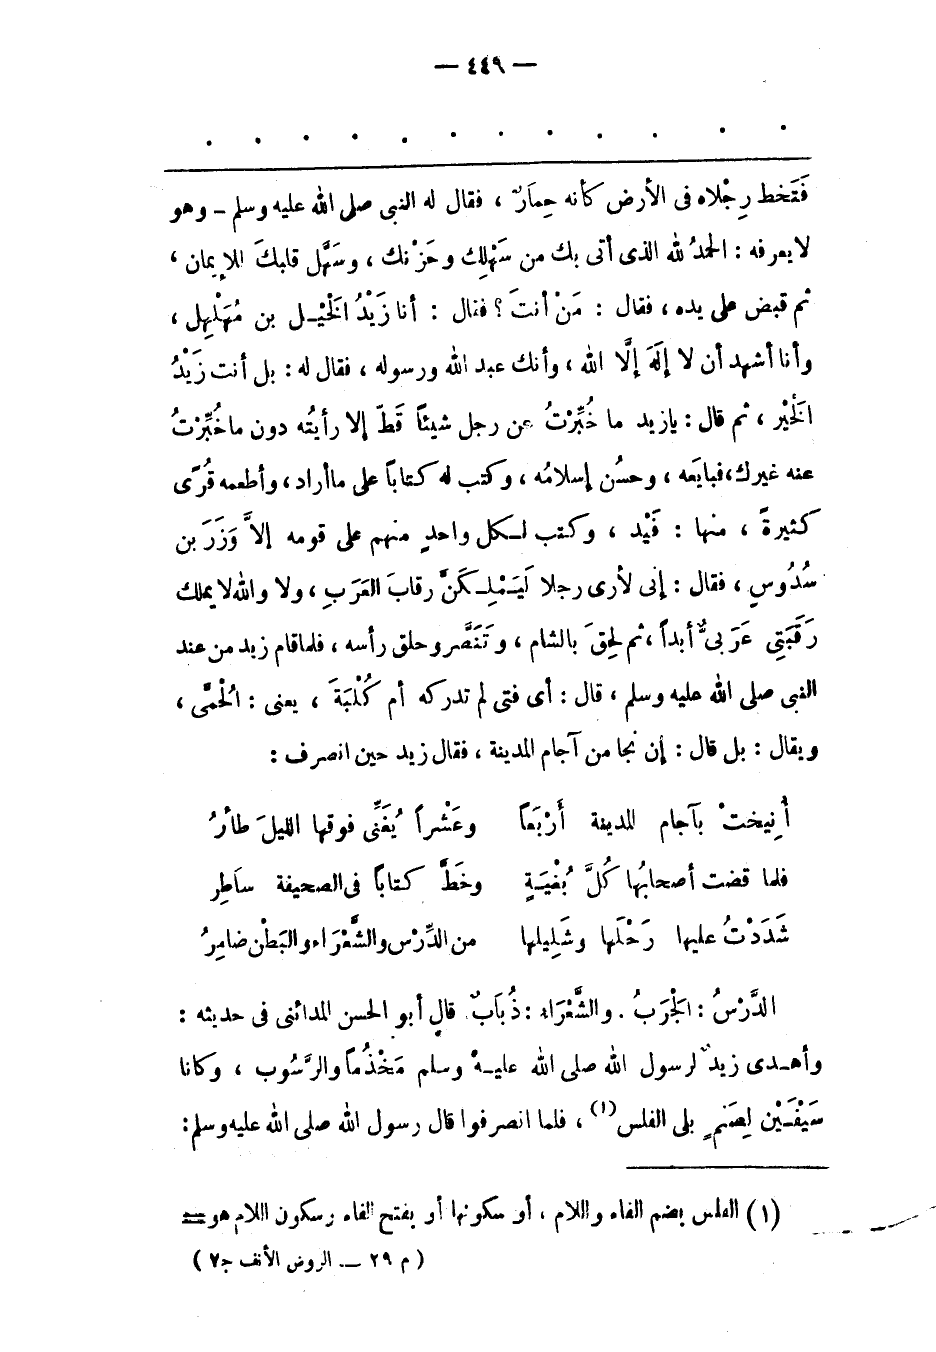 — ٤٤٩ —
فَتَخط رِجْلاه فى الأرض كأنه حِمارٌ ، فقال له النبى صلى الله عليه وسلم ـ وهو
لايعرفه : الحمدُ لله الذى أتى بك من سَهْلِك وحَزْنك ، وسَهَّل قلبكَ للإيمان ،
ثم قبض على يده ، فقال : مَنْ أنتَ ؟ فقال : أنا زَيْدُ الخَيْـل بن مُهَلْهِل ،
وأنا أشهد أن لا إلَهَ إلَّا الله ، وأنك عبد الله ورسوله ، فقال له : بل أنت زَيْدُ
الخَيْر ، ثم قال : يازيد ما خُبِّرْتُ عن رجل شيئاً قَطّ إلا رأيتُه دون ماخُبِّرْتُ
عنه غيرك،فبايَعه ، وحسُن إسلامُه ، وكتب له كتاباً على ماأراد ، وأطعمه قُرًى
كثيرةً ، منها : فَيْد ، وكتب لـكل واحدٍ منهم على قومه إلاَّ وَزَرَ بن
سُدُوسٍ ، فقال : إنى لأرى رجلا لَيَـمْلِـكَنَّ رقابَ العَرَبِ ، ولا والله لا يملك
رَقَبَتِى عَرَبىٌّ أبداً ، ثم لحِقَ بالشام ، وتَنَصَّر وحلق رأسه ، فلما قام زيد من عند
النبى صلى الله عليه وسلم ، قال : أى فتى لم تدركه أم كُلْبَةَ ، يعنى : الْحُمَّى ،
ويقال : بل قال : إن نجا من آجام المدينة ، فقال زيد حين انصرف :
أُنِيخَتْ بآجام المدينة أَرْبَعاً وعَشْراً يُغَنِّى فوقها الليلَ طائرُ
فلما قضت أصحابُها كُلَّ بُغْيَـةٍ وخَطَّ كتاباً فى الصحيفة سَاطِر
شَدَدْتُ عليها رَحْلَها وشَلِيلها من الدِّرْس والشَّعْرَاء والبَطْن ضامِرُ
الدَّرْسُ : الجَرَبُ . والشَّعْرَاء : ذُبَابٌ قال أبو الحسن المدائنى فى حديثه :
وأهـدى زيدٌ لرسول الله صلى الله عليـه وسلم مَخْذُماً والرَّسُوب ، وكانا
سَيْفَـيْن لِصَنمٍ بلى الفلس (١) ، فلما انصرفوا قال رسول الله صلى الله عليه وسلم :
(١) الفلس بضم الفاء واللام ، أو سكونها أو بفتح الفاء وسكون اللام هو =
( م ٢٩ — الروض الأنف ج٧ )